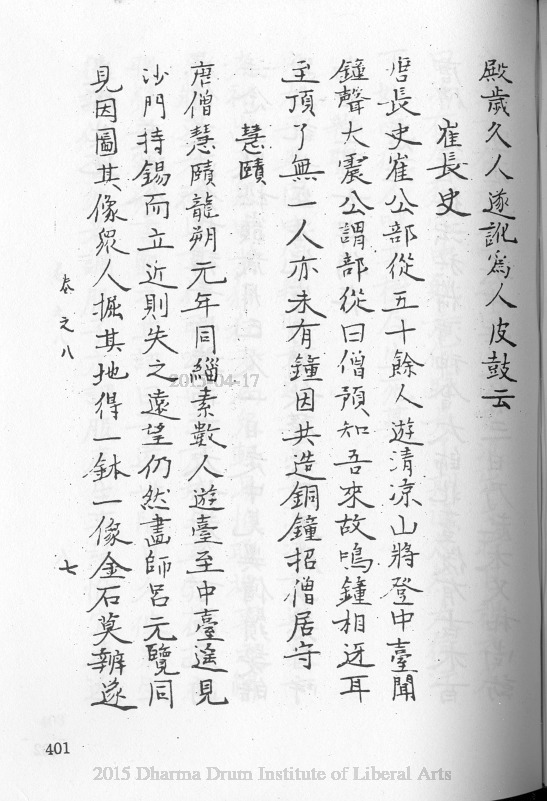 殿歲久人遂訛爲人皮鼓云
崔長史
唐長史崔公部從五十餘人遊清凉山將登中臺聞
鐘聲大震公謂部從曰僧預知吾來故鳴鍾相迓耳
至頂了無一人亦未有鐘因共造銅鐘招僧居守
慧賾
唐僧慧賾龍朔元年同緇素數人遊臺至中臺遙見
沙門持錫而立近則失之遠望仍然畫師呂元覽同
見因圖其像衆人掘其地得一鉢一像金石莫辨遂
卷之八
七
401
2015-04-17
2015 Dharma Drum Institute of Liberal Arts